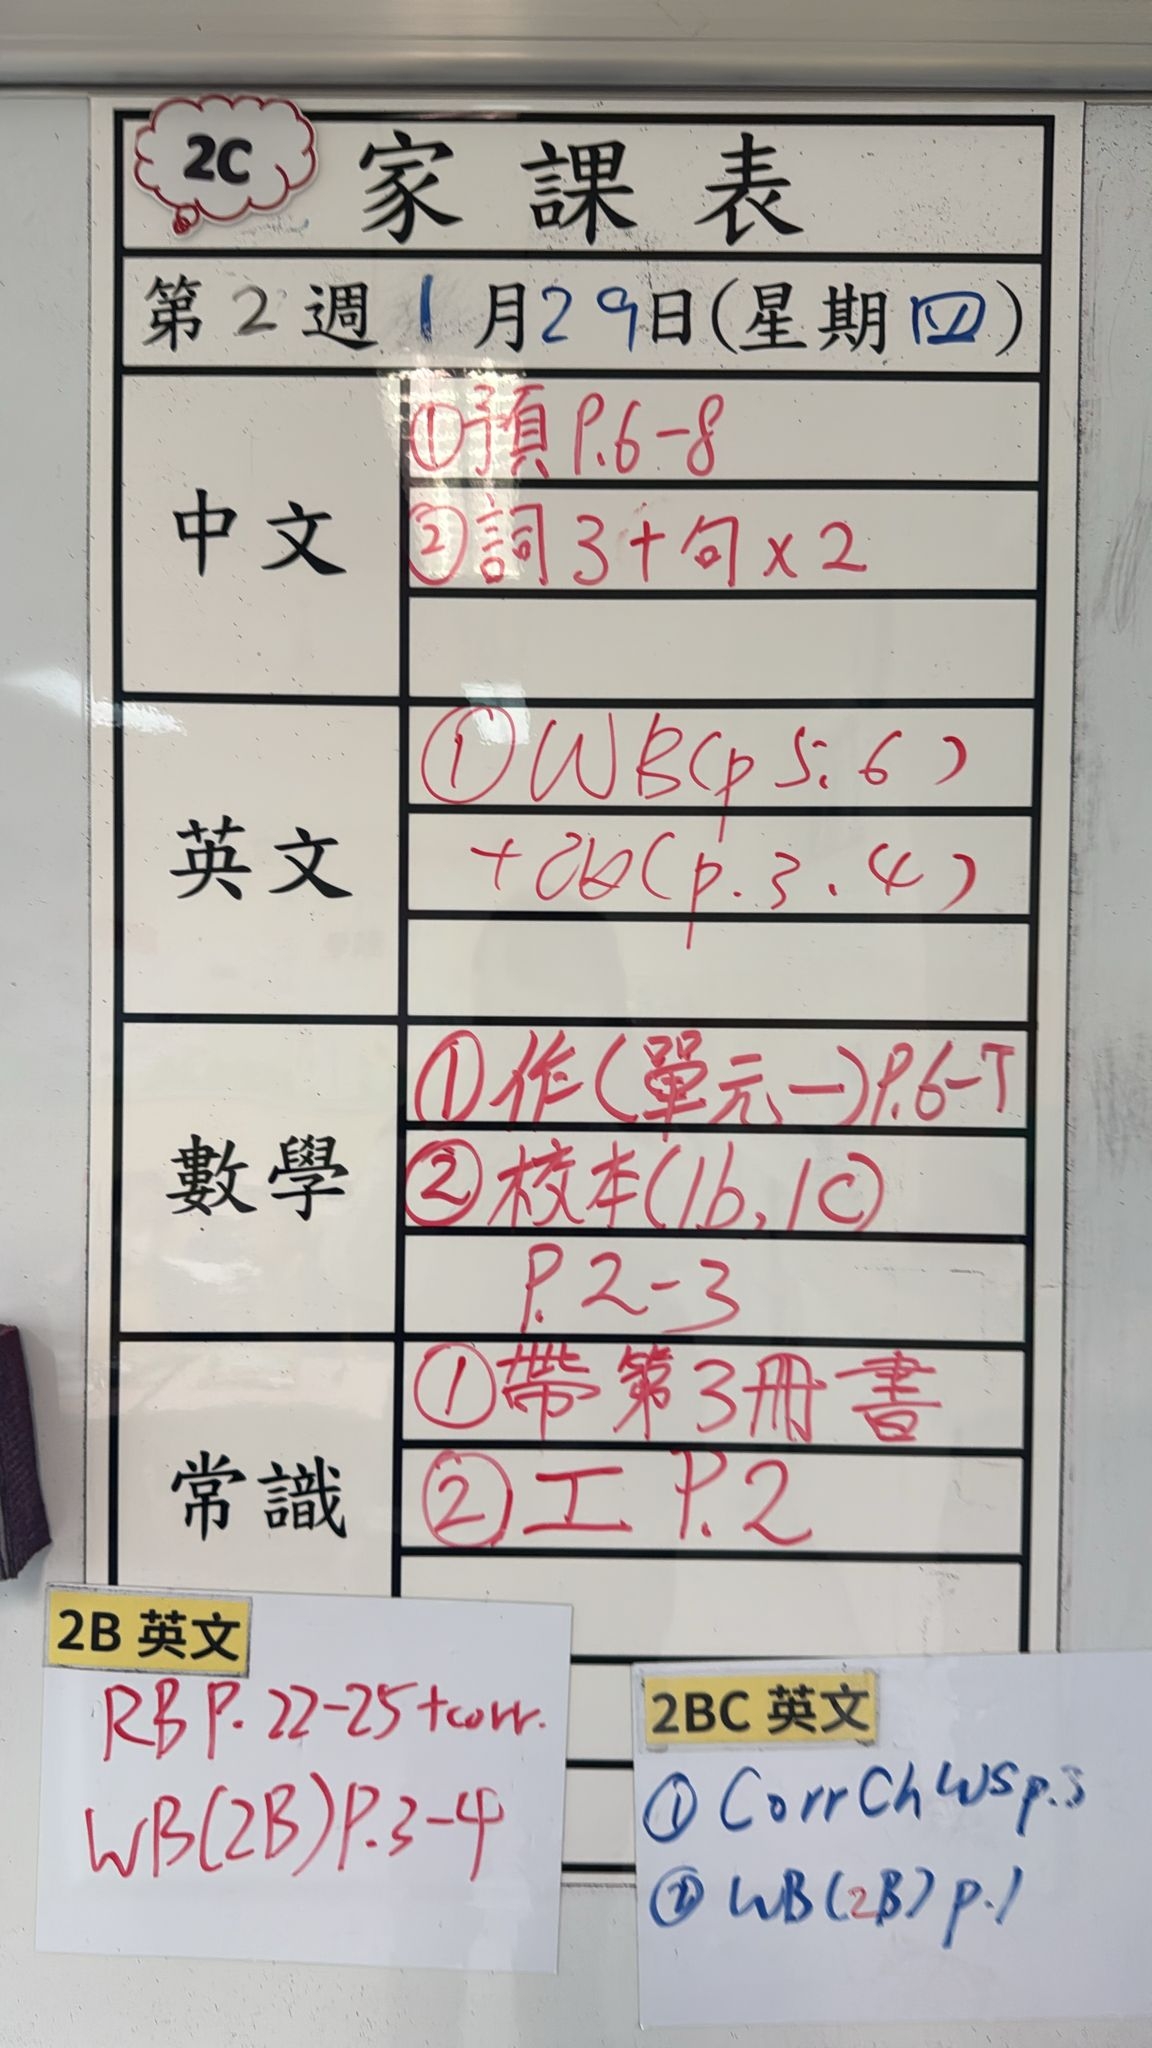 2C 家課表
第2週 1月29日(星期四)
中文
①預P.6-8
②詞3+句x2
英文
①WB(p5;6)
+ (p.3.4)
數學
①作(單元一)P.6-7
②校本(1b,1c)
P.2-3
常識
①帶第3冊書
②工 P.2
2B 英文
RB P.22-25+corr.
WB(2B)P.3-4
2BC 英文
① Corr Ch WS p.3
② WB(2B) p.1